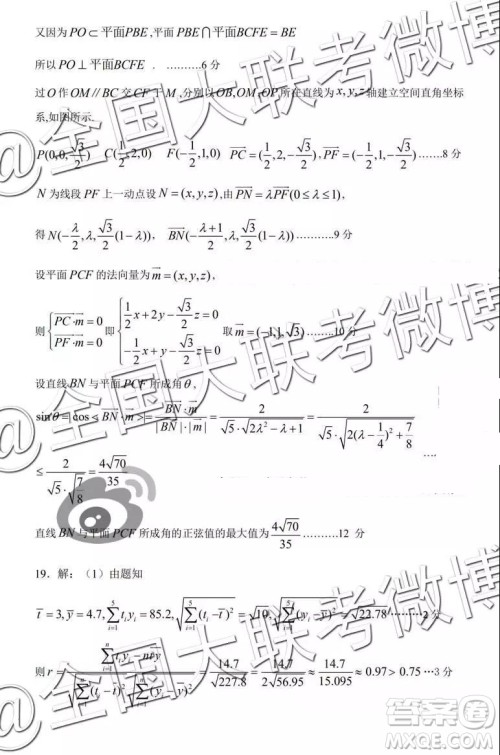 又因为 PO⊂平面PBE,平面 PBE⋂平面BCFE=BE
所以 PO⊥平面BCFE . ……….6分
过 O 作 OM//BC 交 CF 于 M ,分别以OB,OM,OP,所在直线为 x,y,z 轴建立空间直角坐标
系,如图所示.
P(0,0,√3/2) C(1/2,2,0) F(-1/2,1,0) PC=(1/2,2,-√3/2),PF=(-1/2,1,-√3/2) ……..8分
N 为线段 PF 上一动点设 N=(x,y,z),由 PN=λPF(0≤λ≤1),
得 N(-λ/2,λ,√3/2(1-λ)), BN(-(λ+1)/2,λ,√3/2(1-λ))……….9分
设平面 PCF 的法向量为 m=(x,y,z),
则 {PC·m=0 PF·m=0 即 {1/2x+2y-√3/2z=0 -1/2x+y-√3/2z=0 取 m=(-1,1,√3) ……..10分
设直线 BN 与平面 PCF 所成角 θ,
sinθ=|cos<BN·m>=BN·m/|BN|·|m|=2/(√5·√(2λ²-λ+1))=2/(√5·√(2(λ-1/4)²+7/8))
≤2/(√5·√(7/8))=4√70/35
直线 BN 与平面 PCF 所成角的正弦值的最大值为 4√70/35 ……….12 分
19. 解:(1)由题知
t=3,y=4.7,∑tᵢyᵢ=85.2,√∑(tᵢ-t)²=√10,√∑(yᵢ-y)²=√22.78 ……2分
则 r=(∑tᵢyᵢ-nty)/(√∑(tᵢ-t)²√∑(yᵢ-y)²)=14.7/√227.8=14.7/2√56.95≈14.7/15.095≈0.97>0.75 …3分
@全国大联考微博
@全国大联考微博
@全国大联考微博
答案圈
MXQE.COM